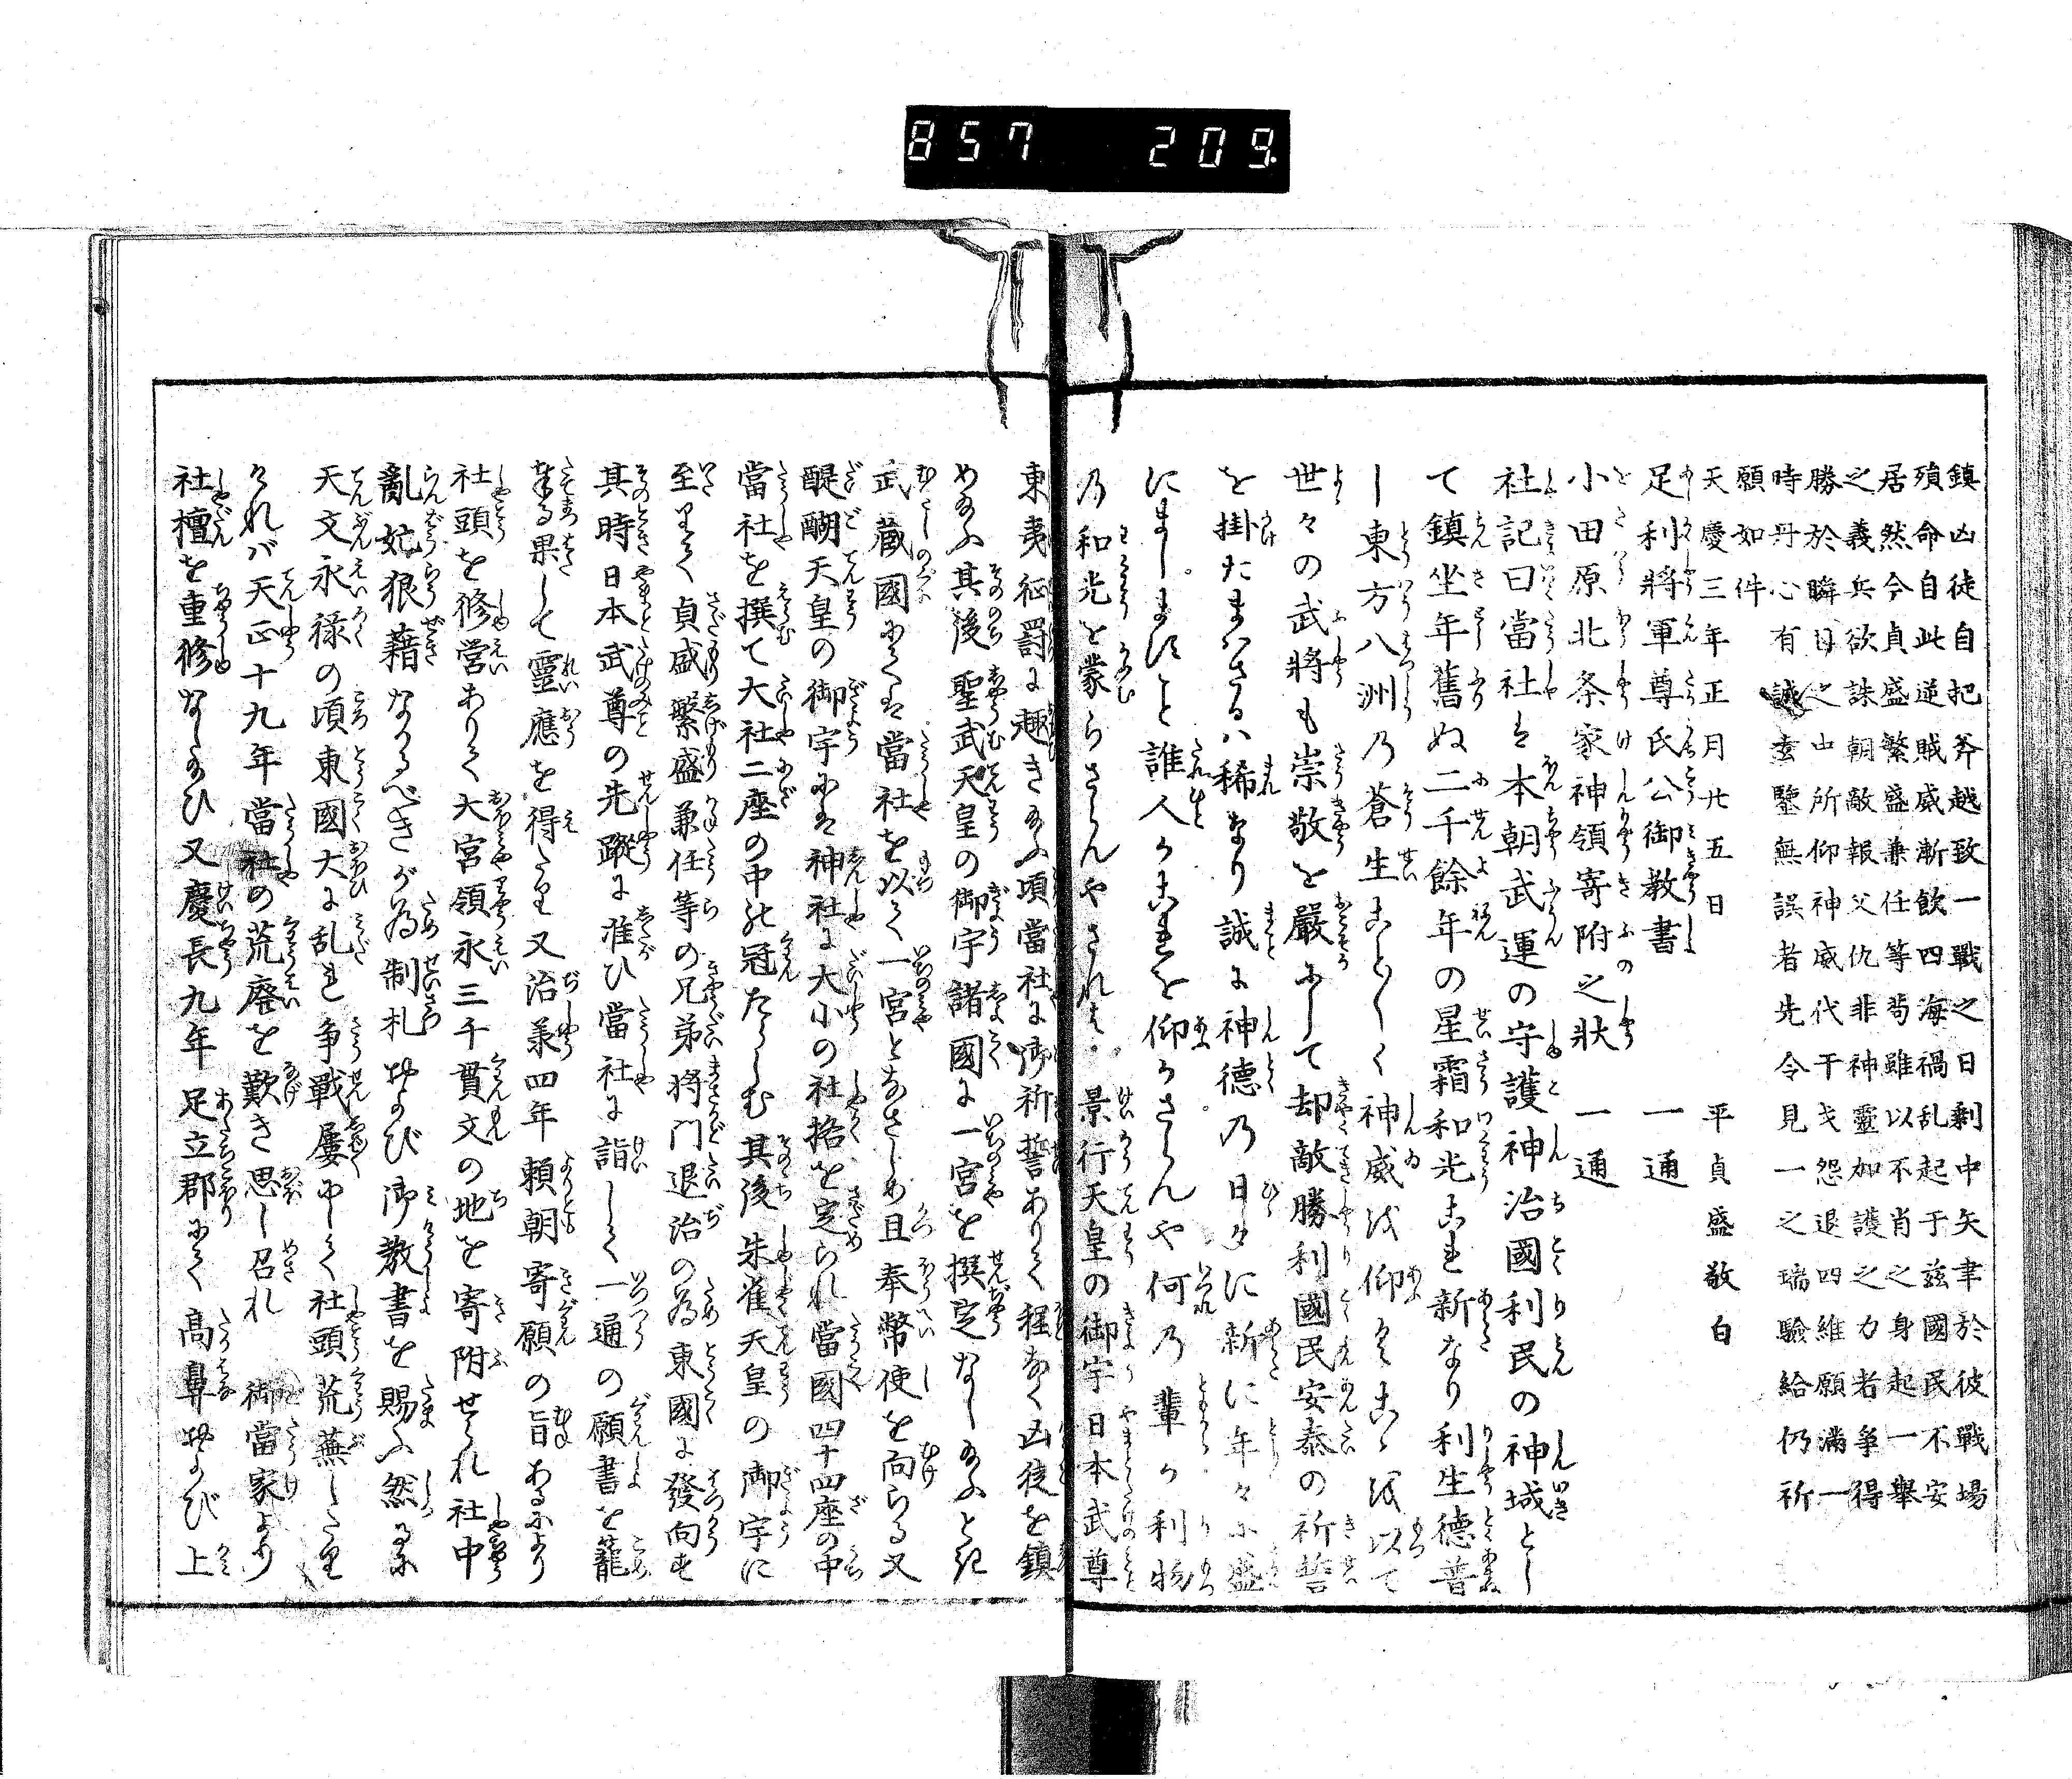 857 209.
鎮凶徒自把斧越致一戰之日剰中矢聿於彼戰場
殞命自此逆賊威漸飲四海禍乱起于兹國民不安
居然今貞盛繁盛兼任等苟雖以不肖之身起一舉
之義兵欲誅朝敵報父仇非神靈加護之力者争得
勝於瞬日之中所仰神威代干戈怨退四維願滿一
時丹心有誠玄鑒無誤者先令見一之瑞驗給仍祈
願如件
天慶三年正月廿五日 平貞盛敬白
足利將軍尊氏公御教書 一通
小田原北条家神領寄附之狀 一通
社記曰當社は本朝武運の守護神治國利民の神域とし
て鎮坐年舊ぬ二千餘年の星霜和光これ新なり利生德普
し東方八洲乃蒼生ことことく神威を仰きてこゝを以て
世々の武將も崇敬を嚴にして却敵勝利國民安泰の祈誓
を掛たまはさるハ稀なり誠に神德乃日々に新に年々に盛
にましますこと誰人かこれを仰かさらんや何乃輩か利物
乃和光を蒙らさらんやされは景行天皇の御宇日本武尊
東夷征罸に趣き給ふ頃當社に御祈誓ありて程なく凶徒を鎮
め給ふ其後聖武天皇の御宇諸國に一宮を撰定なし給ふとき
武藏國にては當社を以て一宮となさしめ且奉幣使を向らる又
醍醐天皇の御宇には神社に大小の社格を定られ當國四十四座の中
當社を撰て大社二座の中の冠たらしむ其後朱雀天皇の御宇に
至りて貞盛繁盛兼任等の兄弟將門退治の為東國に發向す
其時日本武尊の先蹤に准ひ當社に詣して一通の願書を籠
奉る果して靈應を得たり又治承四年頼朝寄願の旨あるにより
社頭を修営ありて大宮領永三千貫文の地を寄附せられ社中
亂妨狼藉なかるべきが為制札および御教書を賜ふ然るに
天文永禄の頃東國大に乱れ争戰屢にして社頭荒蕪したり
けれバ天正十九年當社の荒廢を歎き思し召れ 御當家より
社檀を重修なし給ひ又慶長九年足立郡にて高鼻および上